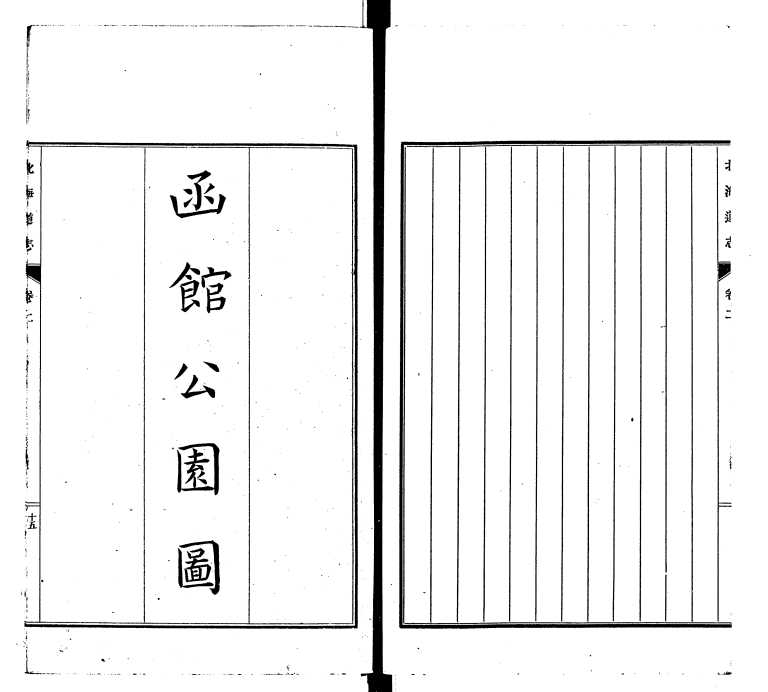 北海道志
卷二
函館公園圖
北海道志
卷二
十五